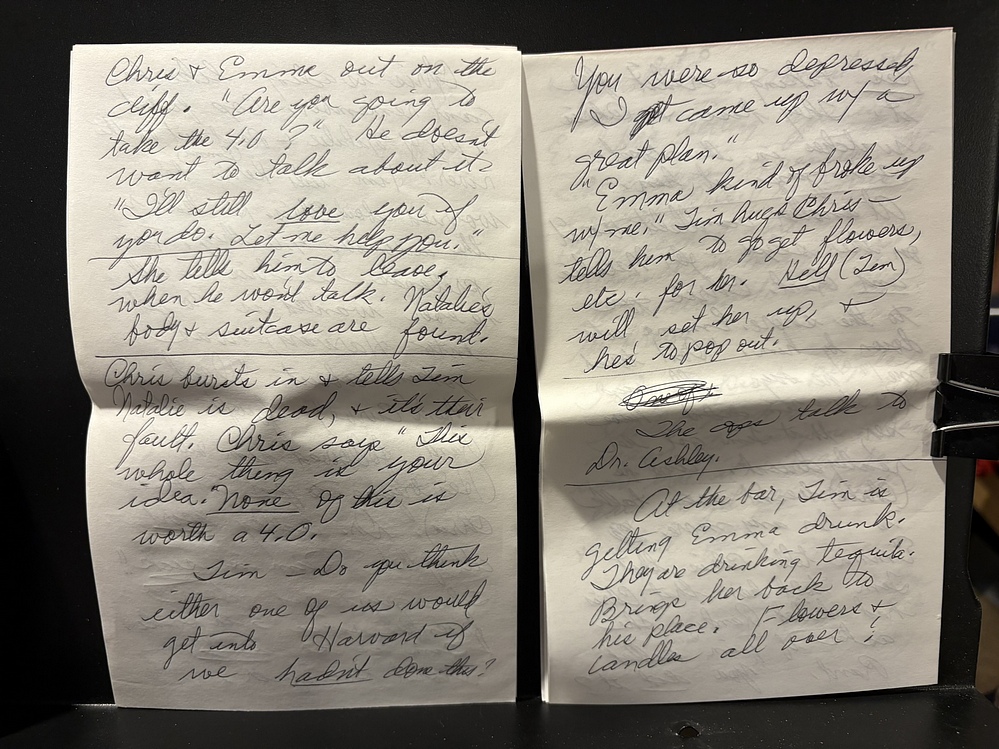 Chris + Emma out on the
cliff. "Are you going to
take the 4.0?" He doesn't
want to talk about it.
"I'll still love you if
you do. Let me help you."
She tells him to leave,
when he won't talk. Natalie's
body + suitcase are found.
Chris bursts in + tells Tim
Natalie is dead, + it's their
fault. Chris says "This
whole thing is your
idea. "None of this is
worth a 4.0.
Tim - Do you think
either one of us would
get into Harvard if
we hadn't done this?
You were so depressed,
I came up w/ a
great plan."
"Emma kind of broke up
w/ me." Tim hugs Chris -
tells him to go get flowers,
etc. for her. He'll (Tim)
will set her up, +
he's to pop out.
The cops talk to
Dr. Ashley.
At the bar, Tim is
getting Emma drunk.
They are drinking tequila.
Brings her back to
his place. Flowers +
candles all over!